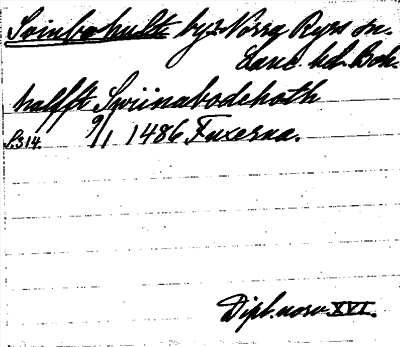 Svinbohult by i Norra Ryrs sn.
Lane hd. Boh.
halfft Swiinabodehoth
S.314. 9/1 1486 Fuxerna.
Dipl. norv. XVI.